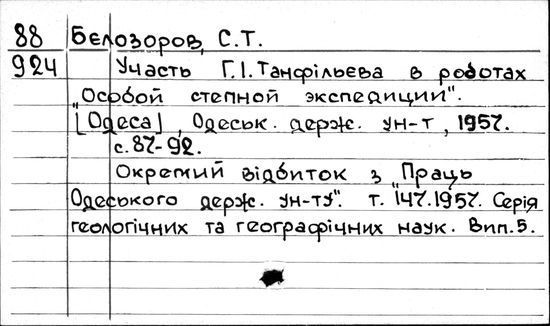 88 Бєлозоров, С.Т.
924 Участь Г.І.Танфільєва в роботах
"Особой степной экспедиции".
[Одеса], Одеськ. держ. ун-т, 1957.
с.87-92.
Окремий відбиток з "Праць
Одеського держ. ун-ту". т. 147.1957. Серія
геологічних та географічних наук. Вип.5.